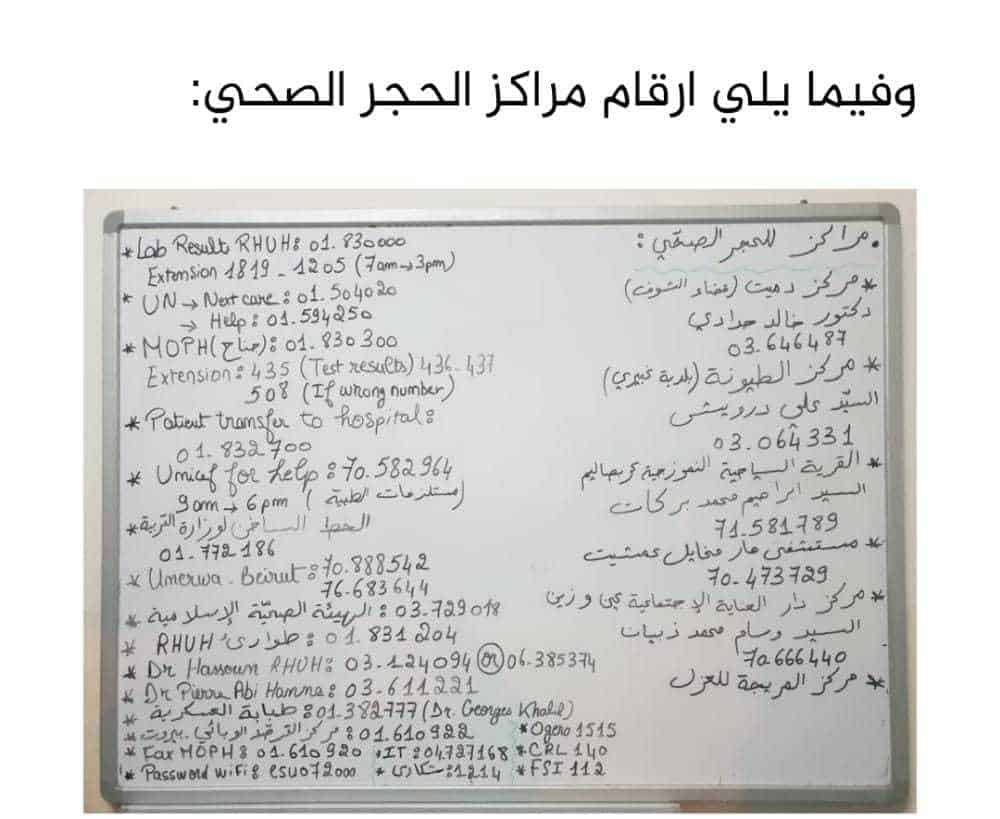 وفيما يلي ارقام مراكز الحجر الصحي:
مراكز للحجر الصحّي:
* مركز دميت (قضاء الشوف)
دكتور خالد حدادي
03.646487
* مركز الطيونة (بلدية غبيري)
السيّد علي درويش
03.064331
* القرية السياحية النموذجية كربصاليم
السيد ابراهيم محمد بركات
71.581789
* مستشفى مار مخايل عمشيت
70.473729
* مركز دار العناية الإجتماعية
السيد وسام محمد ذبيات
70.666440
* مركز المريجة للعزل
* Lab Result RHUH: 01.830000
Extension 1819 - 1205 (7am→3pm)
* UN → Next care: 01.504020
→ Help: 01.594250
* MOPH (جناح): 01.830300
Extension: 435 (Test results) 436-437
508 (If wrong number)
* Patient transfer to hospital:
01.832700
* Unicef for help: 70.582964
9am → 6pm (مستلزمات الطبية)
* الخط الساخن لوزارة التربية
01.772186
* Unerwa. Beirut: 70.888542
76.683644
* الهيئة الصحيّة الإسلامية: 03.729018
* RHUH طوارئ: 01.831204
* Dr Hassoun RHUH: 03.124094 or 06.385374
* Dr Pierre Abi Hanna: 03.611221
* طبابة العسكرية: 01.382777 (Dr. Georges Khalil)
* مركز الترصّد الوبائي بيروت: 01.610922 * Ogero 1515
* Fax MOPH: 01.610920 * IT: 04.727168 * CRL 140
* Password wifi: esu072000 * شكاوى: 1214 * FSI 112